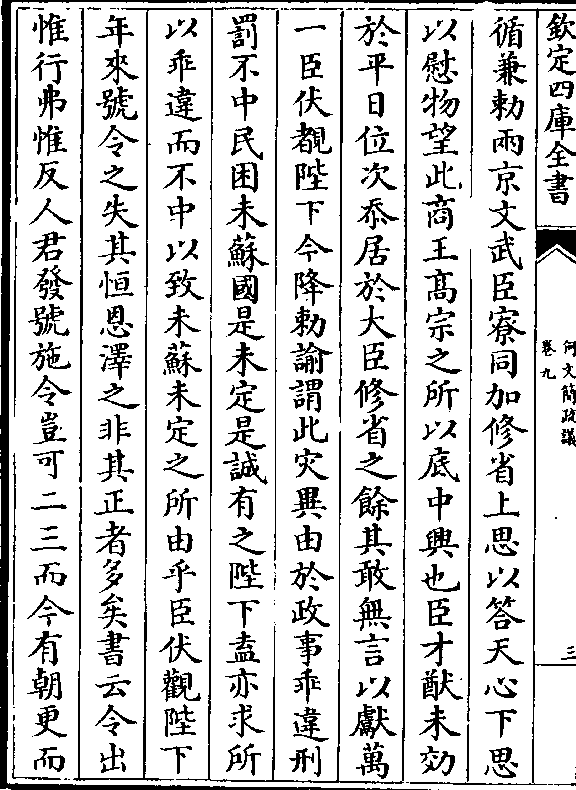 欽定四庫全書
何文簡疏議
卷九
三
循兼勅兩京文武臣寮同加修省上思以答天心下思
以慰物望此商王髙宗之所以底中興也臣才猷未効
於平日位次忝居於大臣修省之餘其敢無言以獻萬
一臣伏覩陛下今降勅諭謂此灾異由於政事乖違刑
罰不中民困未蘇國是未定是誠有之陛下盍亦求所
以乖違而不中以致未蘇未定之所由乎臣伏觀陛下
年來號令之失其恒恩澤之非其正者多矣書云令出
惟行弗惟反人君發號施令豈可二三而今有朝更而